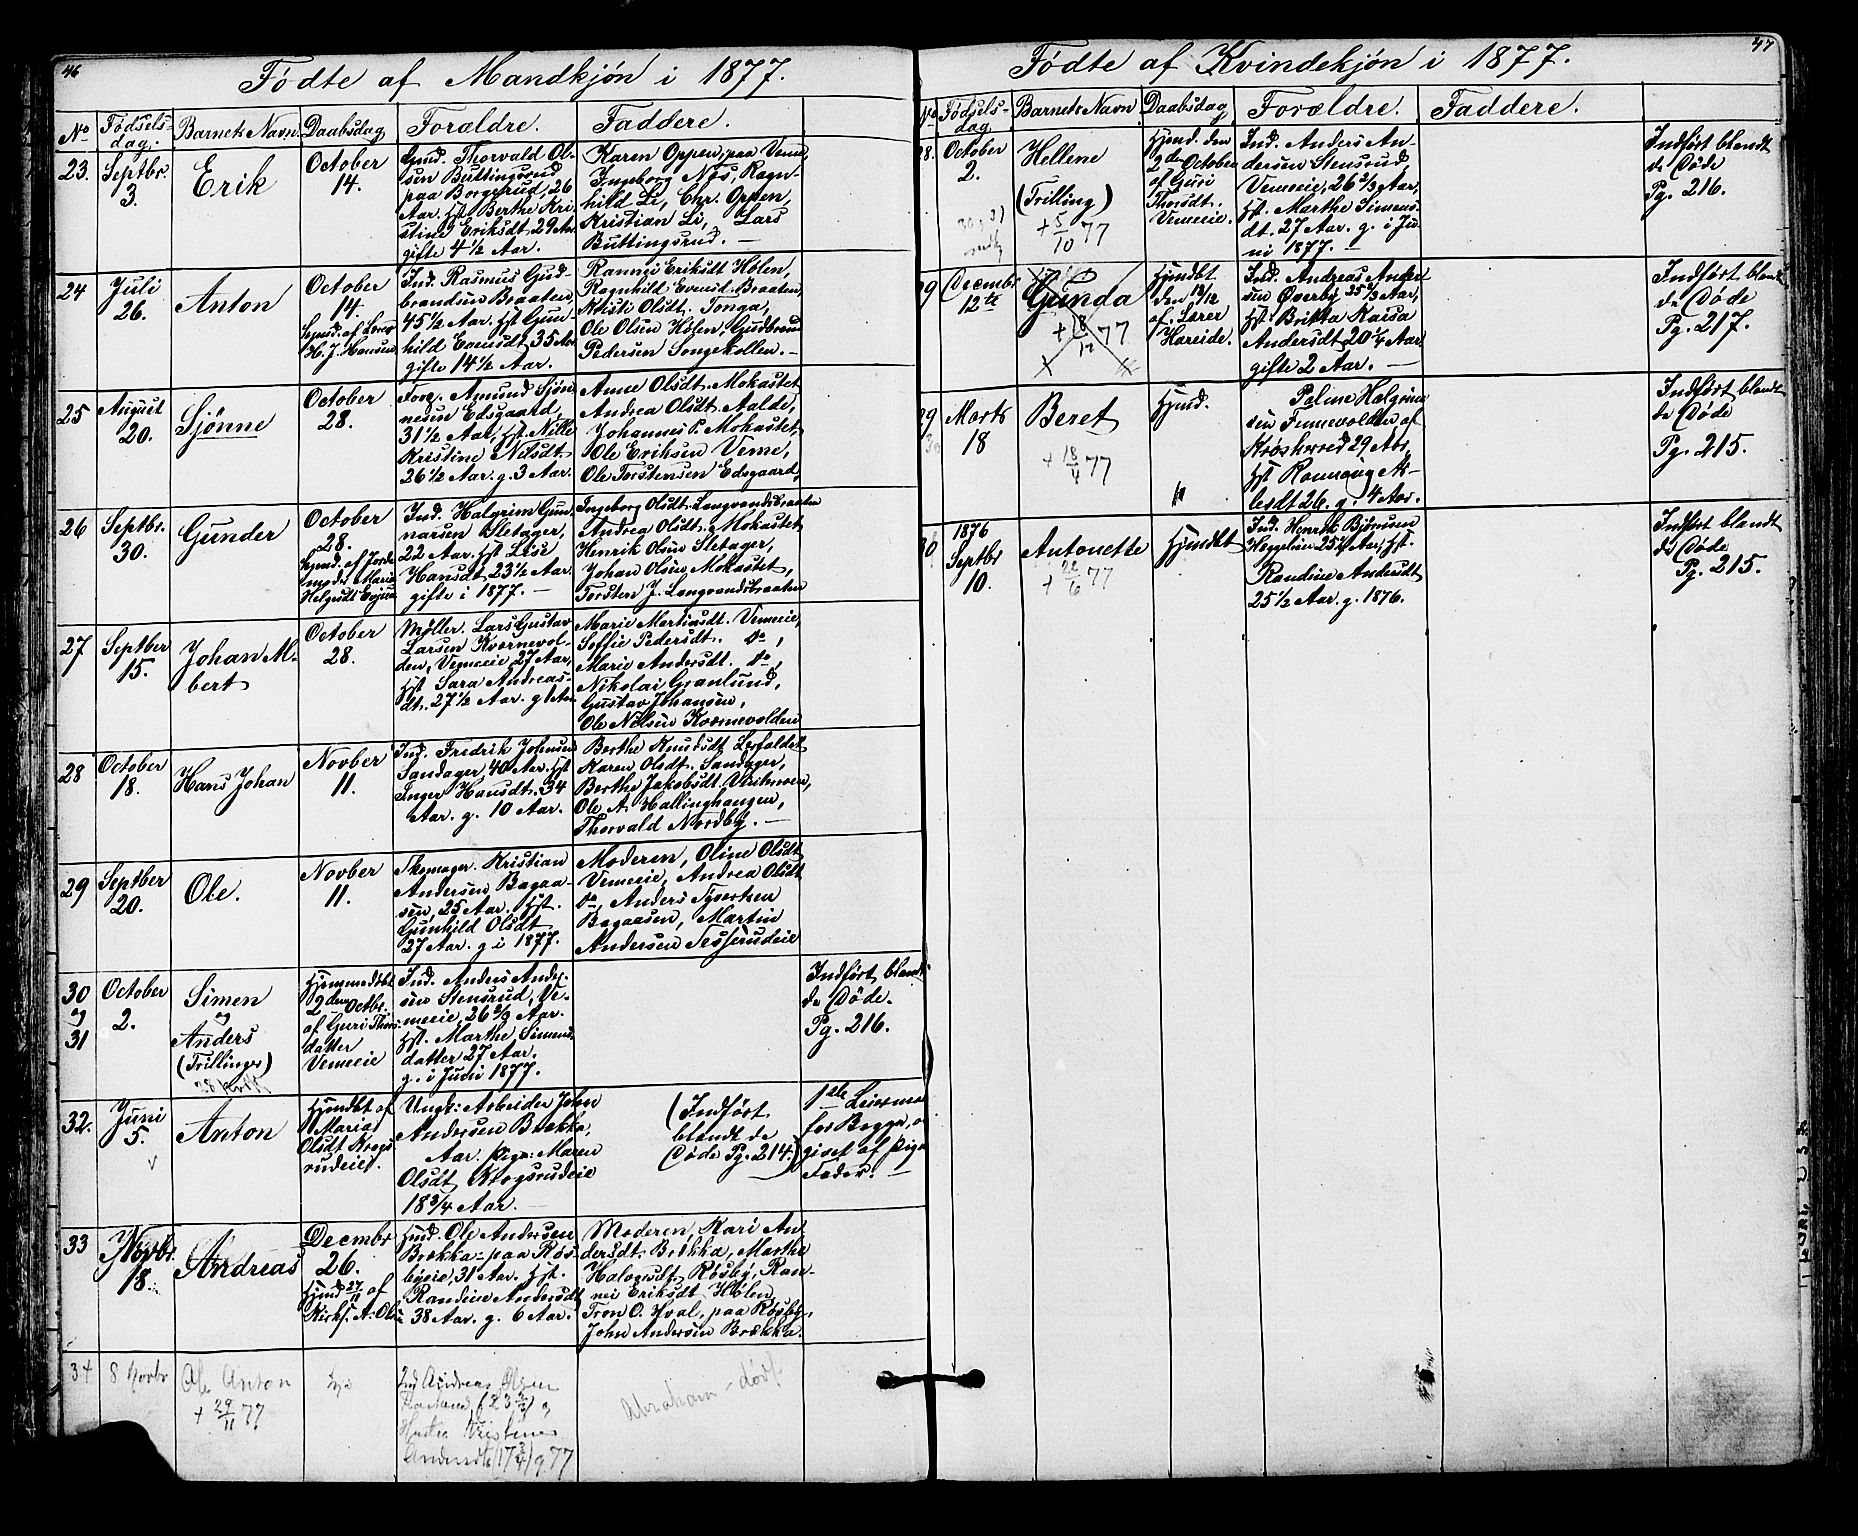 46
Fødte af Mandkjøn i 1877.
No
Fødsels-
dag.
Barnets Navn.
Daabsdag
Forældre.
Faddere.
23.
Septbr.
3.
Erik
October
14.
Thorvald Ol-
sen Buttingsrud
paa Borgerud, 26
Aar. Hst Berthe Kri
stine Eriksdt, 29 Aar
gifte 4 1/2 Aar.
Karen Oppen, paa Veme,
Ingeborg Næs, Ragn-
hild Li, Chr. Oppen,
Kristian Li, Lars
Buttingsrud. —
24
Juli
26.
Anton
October
14.
Hjmd. af Lærer
H. J. Hansen
Ind. Rasmus Gud-
brandsen Braaten,
45 1/2 Aar. Hst Gun
hild Evensdt, 35 Aar
gifte 14 1/2 Aar.
Rannei Eriksdt Hølen,
Ragnhild Evensd. Braaten,
Kristi Olsdt. Tonga,
Ole Olsen Hølen, Gudbrand
Pedersen Songekollen. —
25
August
20.
Sjønne
October
28.
Forp. Amund Sjøn
nesen Edsgaard,
31 1/2 Aar, Hst. Nille
Kristine Nilsdt.
26 1/2 Aar. g. 3 Aar.
Anne Olsdt. Mokastet
Andrea Olsdt. Aalde,
Johannes P. Mokastet,
Ole Eriksen Veme,
Ole Torstensen Edsgaard,
26
Septbr.
30.
Gunder
October
28.
Hjmd. af Jorde
mødr Marie
Helgesdt
Ind. Halgrim Gun
narsen Sletager,
22 Aar. Hst Lise
Hansdt, 23 1/2 Aar.
gifte i 1877. —
Ingeborg Olsdt. Langrandsbraaten
Andrea Olsdt. Mokastet
Henrik Olsen Sletager,
Johan Olsen Mokastet,
Torsten J. Langrandsbraaten
27
Septber
15.
Johan Al-
bert
October
28.
Møller. Lars Gustav
Larsen Kværnevol-
den, Vemeeie 27 Aar,
Hst Sara Andreas-
dt. 27 1/2 Aar. g 1 Aar
Marie Martinsdt. Vemeie,
Soffie Pedersdt. do,
Marie Andersdt. do,
Nikolai Granlund,
Gustav Johansen,
Ole Nilsen Kværnevolden
28
October
18.
Hans Johan
Novber
11.
Ind. Fredrik Johnsen
Sandager, 40 Aar. Hst
Inger Hansdt. 34
Aar. g. 10 Aar.
Berthe Knudsdt Lerfaldet
Karen Olsdt. Sandager,
Berthe Jakobsdt
Ole A. Hallinghaugen,
Thorvald Nordby. —
29
Septber
20.
Ole.
Novber
11.
Skomager. Kristian
Andersen Bagaa-
sen, 25 Aar. Hst.
Gunhild Olsdt.
27 Aar. g i 1877.
Moderen, Oline Olsdt
Vemeeie, Andrea Olsdt
do, Anders Syvertsen
Bagaasen, Martin
Andersen
30
og
31
October
2.
Simen
og
Anders
(Trillinger)
Hjemmedøbt
2den Octbr.
af Guri Thors-
datter
Vemeeie
Ind. Anders Ander-
sen Stensrud, Ve-
meeie, 26 2/3 Aar.
Hst. Marthe Simens
datter 27 Aar.
g. i Juni 1877.
Indført blandt
de Døde.
Pg. 216.
32.
Juni
5.
Anton
Hjmdbt af
Maria
Olsdt Krogs
rudeiet.
Ungk: Arbeider John
Andersen Brekka,
Aar. Pige: Maren
Olsdt Krogsrudeie
18 3/4 Aar.
(Indført
blandt de
Døde Pg. 214.)
1ste Leiermaal
for Begge,
givet af Pigens
Fader. —
33
Novbr.
18.
Andreas
Decembr
26.
Hjmd 27/11 af
Kirks. A. Olsen
Hmd. Ole Andersen
Brekka - paa Røs-
byeie, 31 Aar. Hst.
Randine Andersdt
38 Aar. g. 6 Aar.
Moderen, Kari An
dersdt. Brekka, Marthe
Halvorsdt Røsby, Ran-
nei Eriksdt Hølen
Tron O. Hval, paa Røsby,
John Andersen Brekka.
34
8 Novbr
Ole Anton
+ 29/11 77
Ind Andreas Olsen
Hustru Kristine
Andersdt (17 3/4) g 77
Abraham - døbt
47
Fødte af Kvindekjøn i 1877.
No
Fødsels-
dag
Barnets Navn
Daabsdag
Forældre.
Faddere.
28.
October
2.
Hellene
(Trilling)
+ 5/10 77
Hjmd. den
2den October
af Guri
Thorsdt.
Vemeeie.
Ind. Anders An-
dersen Stensrud,
Vemeeie, 26 2/3 Aar,
Hst. Marthe Simens
dt. 27 Aar. g. i Ju
ni 1877. —
Indført blandt
de Døde
Pg. 216.
29
Decembr
12te
Gunda
+ 18/12 77
Hjmdbt
den 13/12
af. Lærer
Hareide.
Ind. Andreas Ander
sen Øverby 35 2/3 Aar,
Hst. Britta Kaisa
Andersdt, 20 1/4 Aar
gifte 2 Aar. —
Indført blandt
de Døde
Pg. 217.
29
30
Marts
18
Beret
+ 18/4 77
Hjmd.
Palme Halgrim
sen Finnevolden af
Krøshered 29 Aar,
Hst Rønnaug As-
lesdt 26. g. 4 Aar.
Indført blandt
de Døde
Pg. 215.
30
1876
Septbr
10.
Antonette
+ 22/6 77
Hjmdbt
Ind. Henrik Bjørnsen
Heggelien 25 1/4 Aar, Hst.
Randine Andersdt
25 1/2 Aar. g. 1876.
Indført blandt
de Døde
Pg. 215.